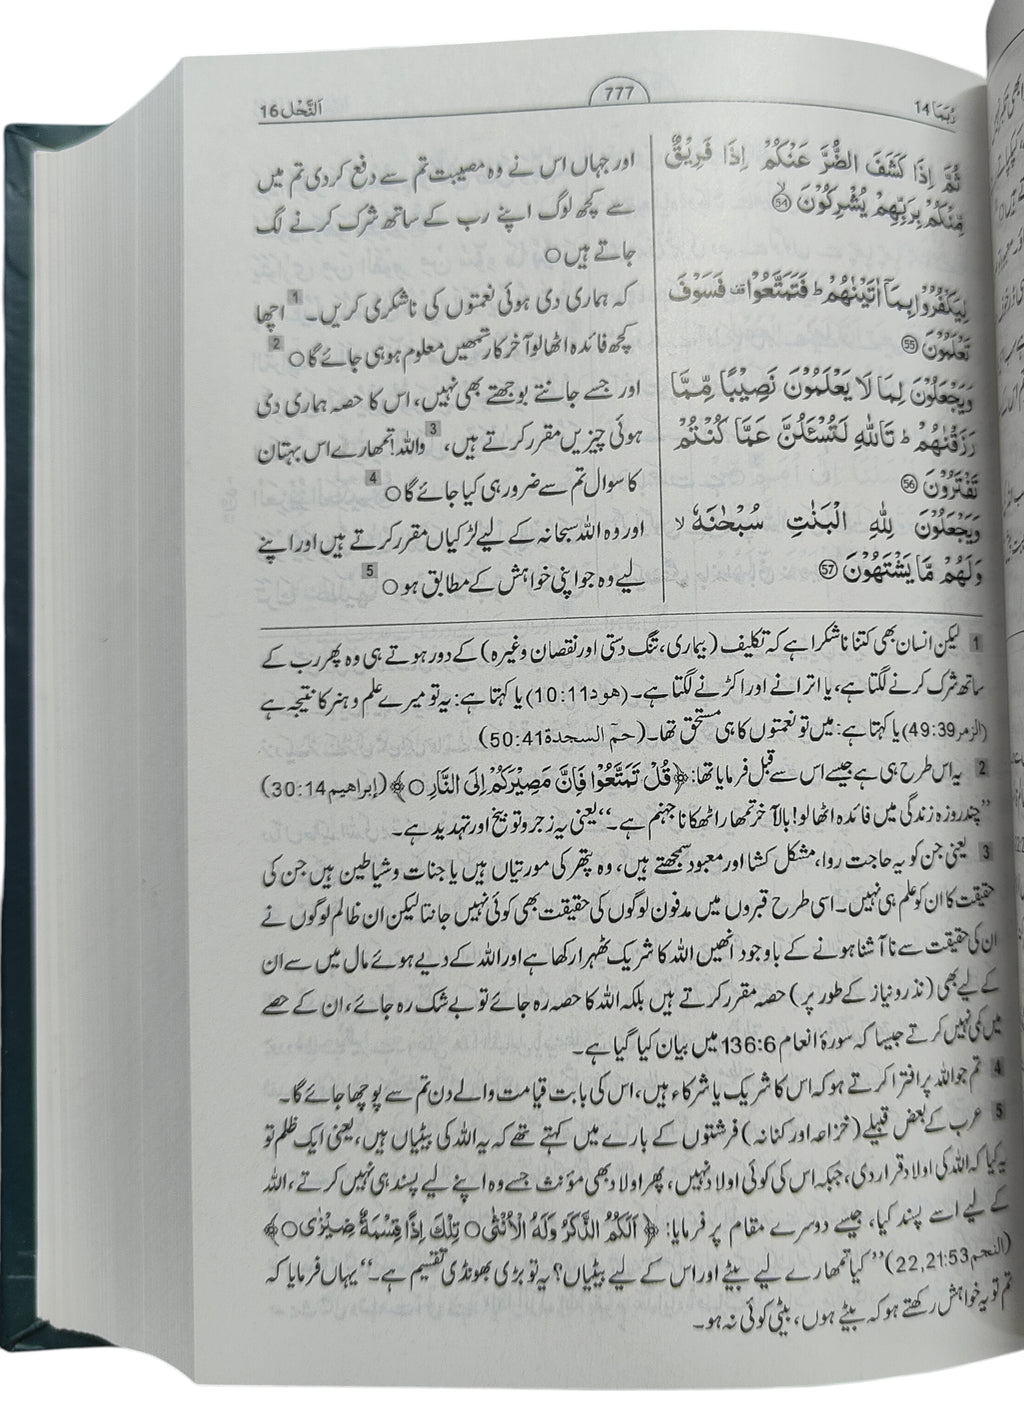 رُبَمَا 14
777
اَلنَّحْل 16
ثُمَّ اِذَا كَشَفَ الضُّرَّ عَنْكُمْ اِذَا فَرِيْقٌ
مِّنْكُمْ بِرَبِّهِمْ يُشْرِكُوْنَ ۙ 54
لِيَكْفُرُوْا بِمَاۤ اٰتَيْنٰهُمْ ؕ فَتَمَتَّعُوْا ۫ فَسَوْفَ
تَعْلَمُوْنَ 55
وَيَجْعَلُوْنَ لِمَا لَا يَعْلَمُوْنَ نَصِيْبًا مِّمَّا
رَزَقْنٰهُمْ ؕ تَاللّٰهِ لَتُسْـَٔلُنَّ عَمَّا كُنْتُمْ
تَفْتَرُوْنَ 56
وَيَجْعَلُوْنَ لِلّٰهِ الْبَنٰتِ سُبْحٰنَهٗ ۙ
وَلَهُمْ مَّا يَشْتَهُوْنَ 57
اور جہاں اس نے وہ مصیبت تم سے دفع کر دی تم میں
سے کچھ لوگ اپنے رب کے ساتھ شرک کرنے لگ
جاتے ہیں○
کہ ہماری دی ہوئی نعمتوں کی ناشکری کریں۔ 1 اچھا
کچھ فائدہ اٹھالو آخر کار تمھیں معلوم ہو ہی جائے گا○ 2
اور جسے جانتے بوجھتے بھی نہیں، اس کا حصہ ہماری دی
ہوئی چیزیں مقرر کرتے ہیں، 3 واللہ! تمھارے اس بہتان
کا سوال تم سے ضرور ہی کیا جائے گا○ 4
اور وہ اللہ سبحانہ کے لیے لڑکیاں مقرر کرتے ہیں اور اپنے
لیے وہ جو اپنی خواہش کے مطابق ہو○ 5
1 لیکن انسان بھی کتنا ناشکرا ہے کہ تکلیف (بیماری، تنگ دستی اور نقصان وغیرہ) کے دور ہوتے ہی وہ پھر رب کے
ساتھ شرک کرنے لگتا ہے، یا اترانے اور اکڑنے لگتا ہے۔ (ھود 10:11) یا کہتا ہے: یہ تو میرے علم و ہنر کا نتیجہ ہے
(الزمر 49:39) یا کہتا ہے: میں تو نعمتوں کا ہی مستحق تھا۔ (حمٓ السجدة 50:41)
2 یہ اس طرح ہی ہے جیسے اس سے قبل فرمایا تھا: ﴿قُلْ تَمَتَّعُوْا فَاِنَّ مَصِيْرَكُمْ اِلَى النَّارِ○﴾ (إبراهيم 30:14)
”چند روزہ زندگی میں فائدہ اٹھالو! بالآخر تمھارا ٹھکانا جہنم ہے۔“ یعنی یہ زجر و توبیخ اور تہدید ہے۔
3 یعنی جن کو یہ حاجت روا، مشکل کشا اور معبود سمجھتے ہیں، وہ پتھر کی مورتیاں ہیں یا جنات و شیاطین ہیں جن کی
حقیقت کا ان کو علم ہی نہیں۔ اسی طرح قبروں میں مدفون لوگوں کی حقیقت بھی کوئی نہیں جانتا لیکن ان ظالم لوگوں نے
ان کی حقیقت سے ناآشنا ہونے کے باوجود انھیں اللہ کا شریک ٹھہرا رکھا ہے اور اللہ کے دیے ہوئے مال میں سے ان
کے لیے بھی (نذر و نیاز کے طور پر) حصہ مقرر کرتے ہیں بلکہ اللہ کا حصہ رہ جائے تو بے شک رہ جائے، ان کے حصے
میں کمی نہیں کرتے جیسا کہ سورۂ انعام 136:6 میں بیان کیا گیا ہے۔
4 تم جو اللہ پر افترا کرتے ہو کہ اس کا شریک یا شرکاء ہیں، اس کی بابت قیامت والے دن تم سے پوچھا جائے گا۔
5 عرب کے بعض قبیلے (خزاعہ اور کنانہ) فرشتوں کے بارے میں کہتے تھے کہ یہ اللہ کی بیٹیاں ہیں، یعنی ایک ظلم تو
یہ کیا کہ اللہ کی اولاد قرار دی، جبکہ اس کی کوئی اولاد نہیں، پھر اولاد بھی مؤنث جسے وہ اپنے لیے پسند ہی نہیں کرتے، اللہ
کے لیے اسے پسند کیا، جیسے دوسرے مقام پر فرمایا: ﴿اَلَكُمُ الذَّكَرُ وَلَهُ الْاُنْثٰى○ تِلْكَ اِذًا قِسْمَةٌ ضِيْزٰى○﴾
(النجم 22,21:53) ”کیا تمھارے لیے بیٹے اور اس کے لیے بیٹیاں؟ یہ تو بڑی بھونڈی تقسیم ہے۔“ یہاں فرمایا کہ
تم تو یہ خواہش رکھتے ہو کہ بیٹے ہوں، بیٹی کوئی نہ ہو۔